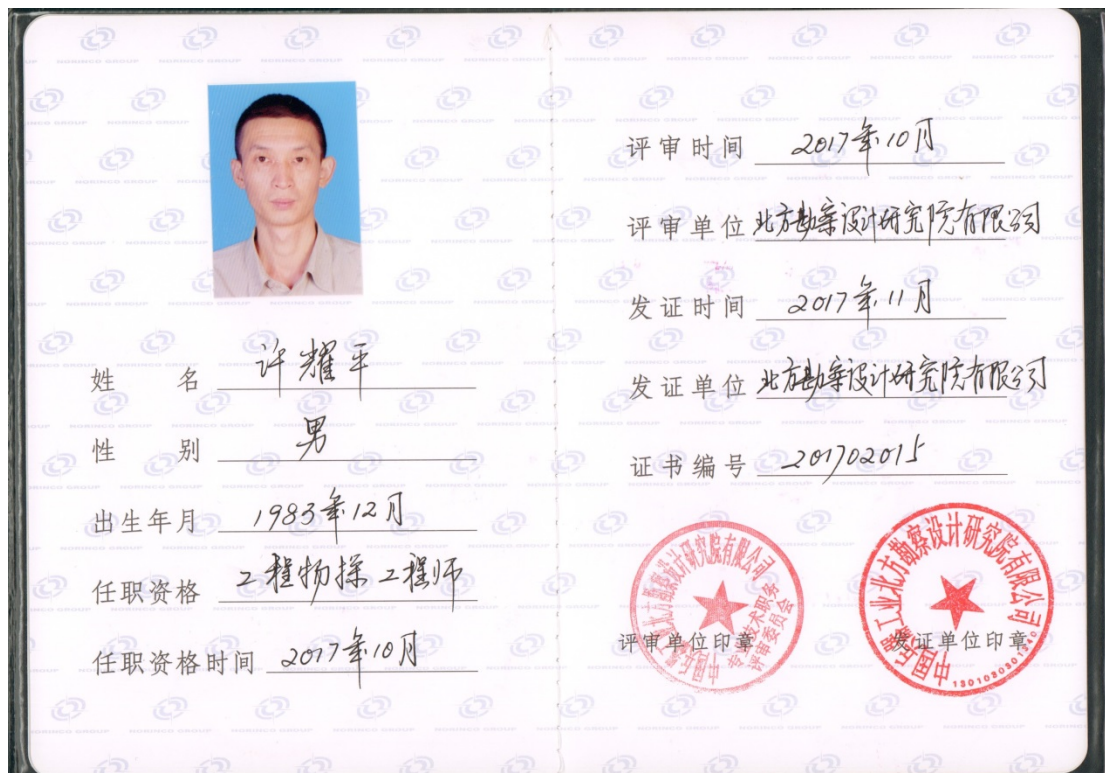 姓 名 许耀平
性 别 男
出生年月 1983年12月
任职资格 工程物探 工程师
任职资格时间 2017年10月
评审时间 2017年10月
评审单位 北方勘察设计研究院有限公司
发证时间 2017年11月
发证单位 北方勘察设计研究院有限公司
证书编号 201702015
评审单位印章
中国兵器工业北方勘察设计研究院有限公司
专业技术职务
评审委员会
发证单位印章
中国兵器工业北方勘察设计研究院有限公司
NORINCO GROUP